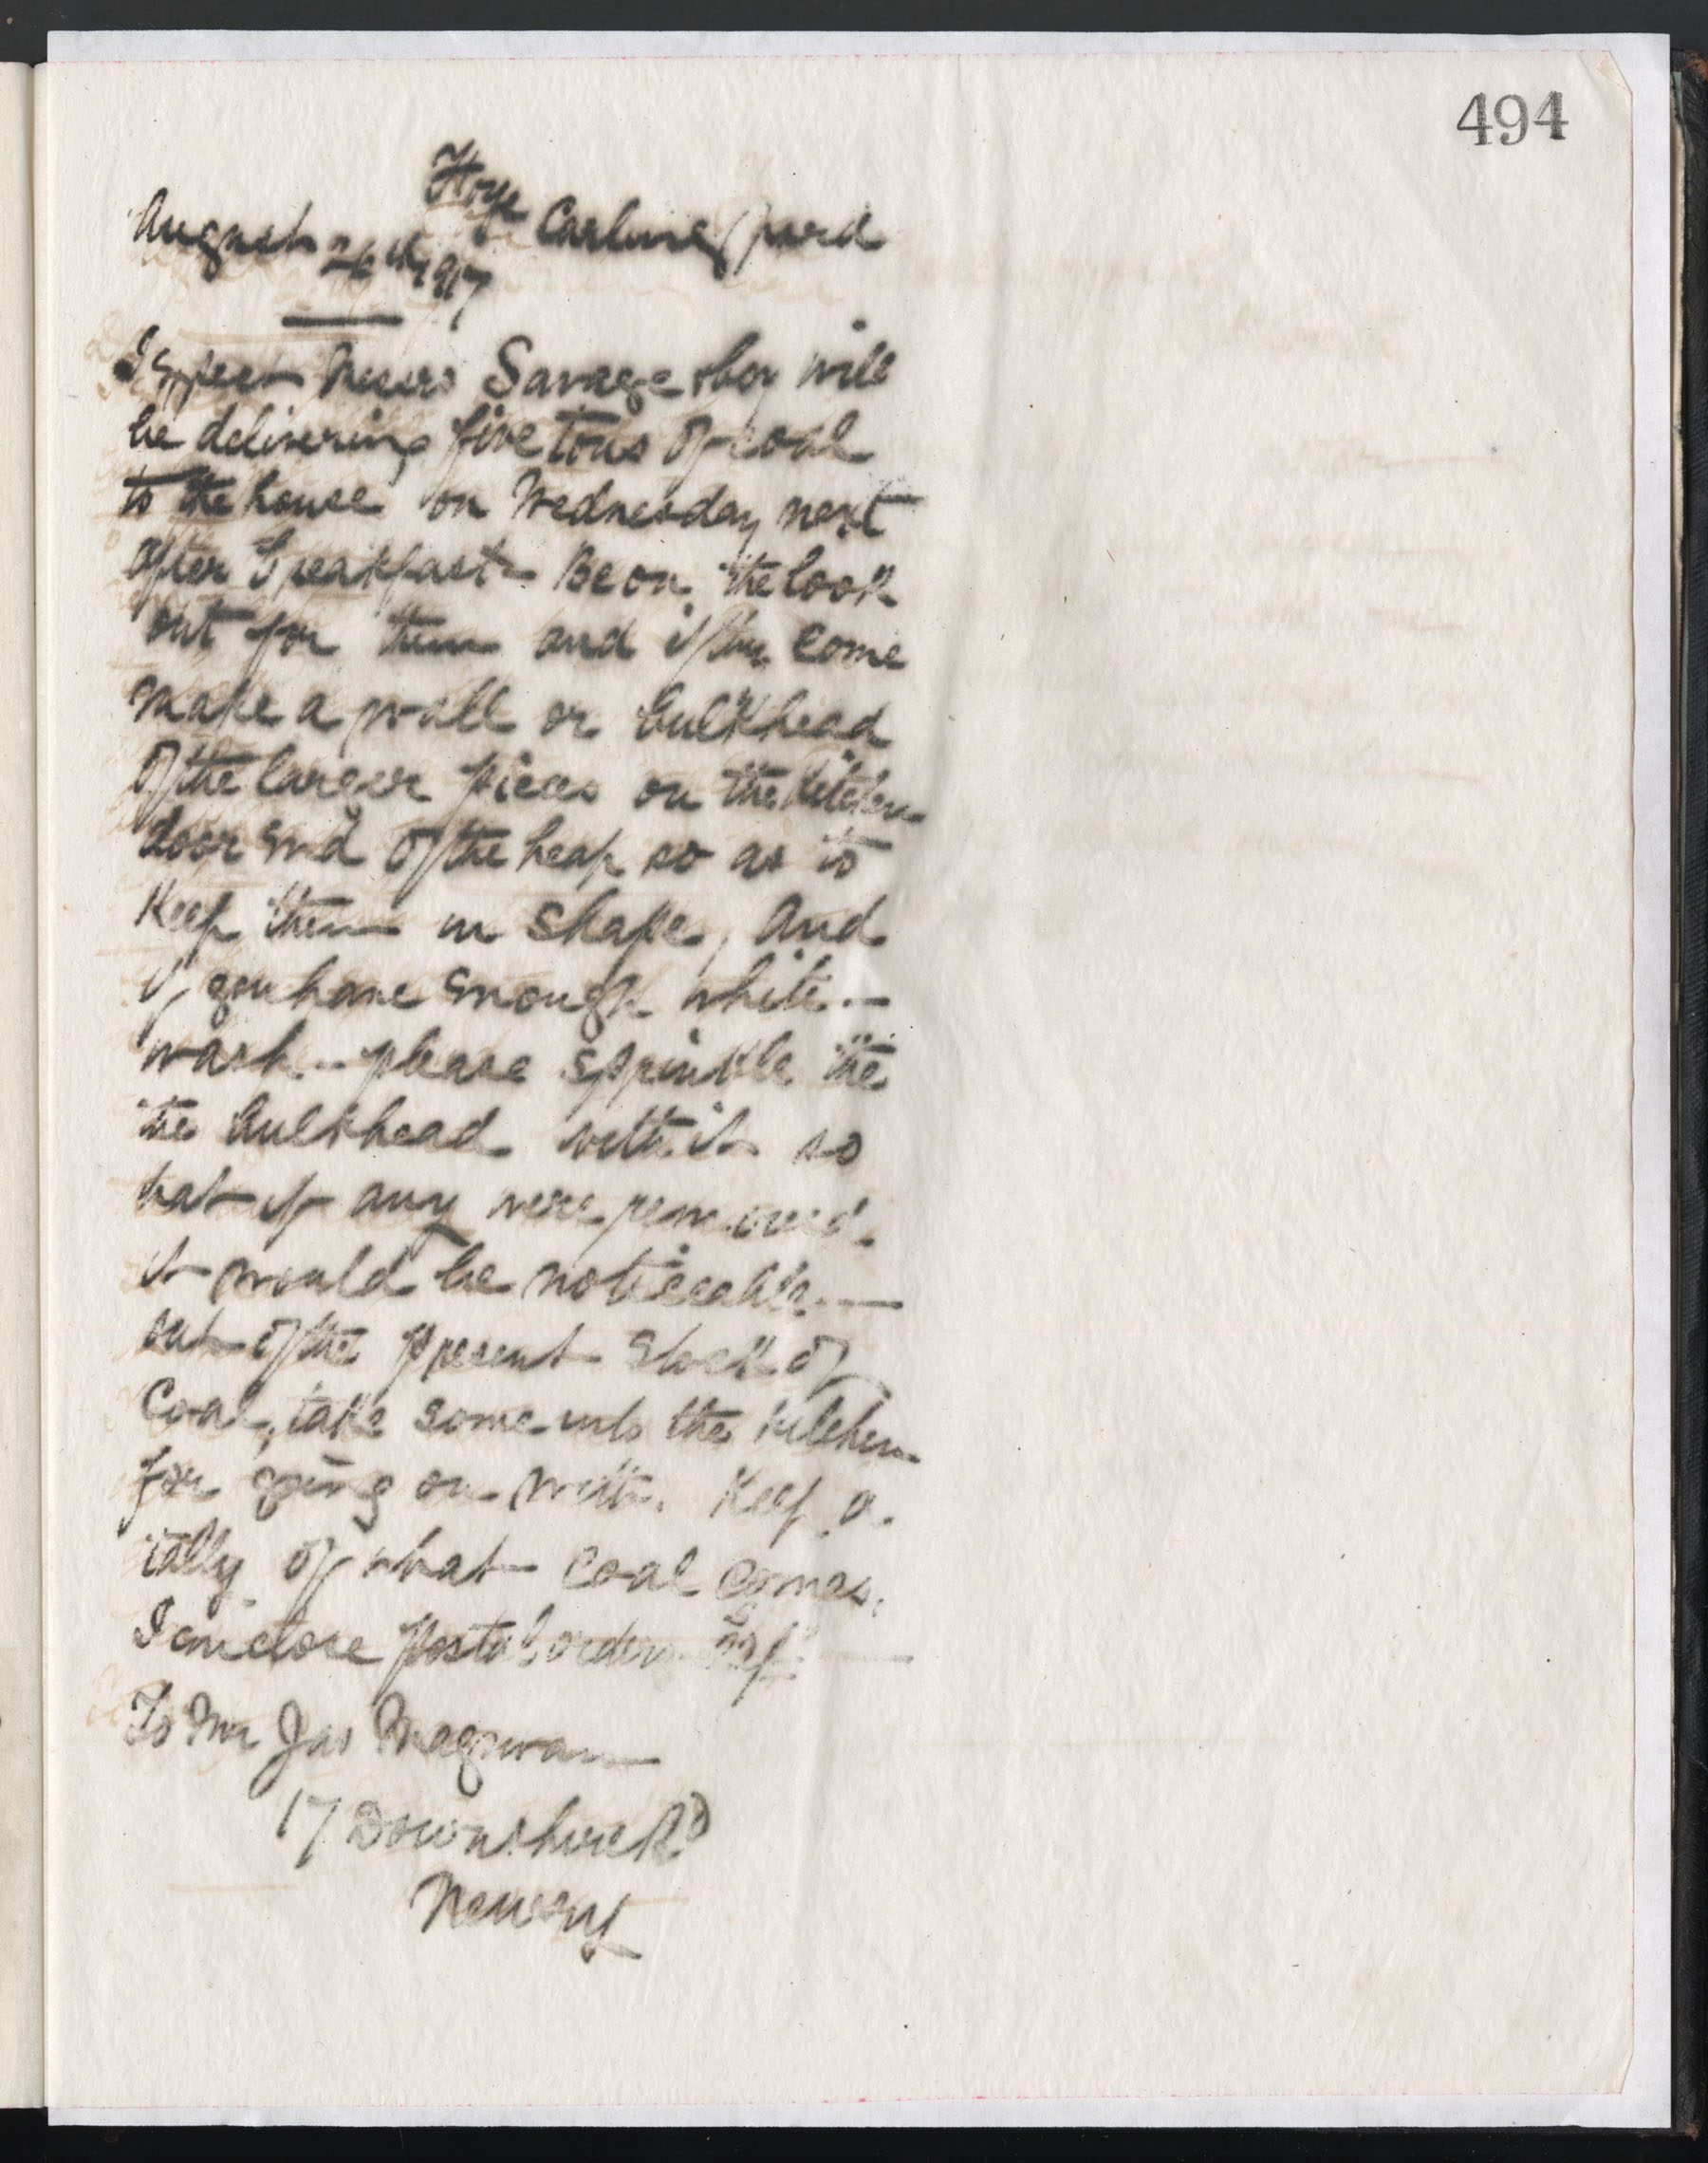 494
Carlingford
August 26th 1917
I expect Messrs Savage & Coy will
be delivering five tons of coal
to the house on Wednesday next
after breakfast. Be on the look
out for them and if they come
make a wall or bulkhead
of the larger pieces on the kitchen
door end of the heap so as to
keep them in shape, and
if you have enough white-
wash - please sprinkle the
the bulkhead with it so
that if any were removed
it would be noticeable —
out of the present stock of
Coal, take some into the kitchen
for going on with. Keep a
tally of what coal comes.
I enclose postal order
To Mr Jas Magowan
17 Downshire Rd
Newry